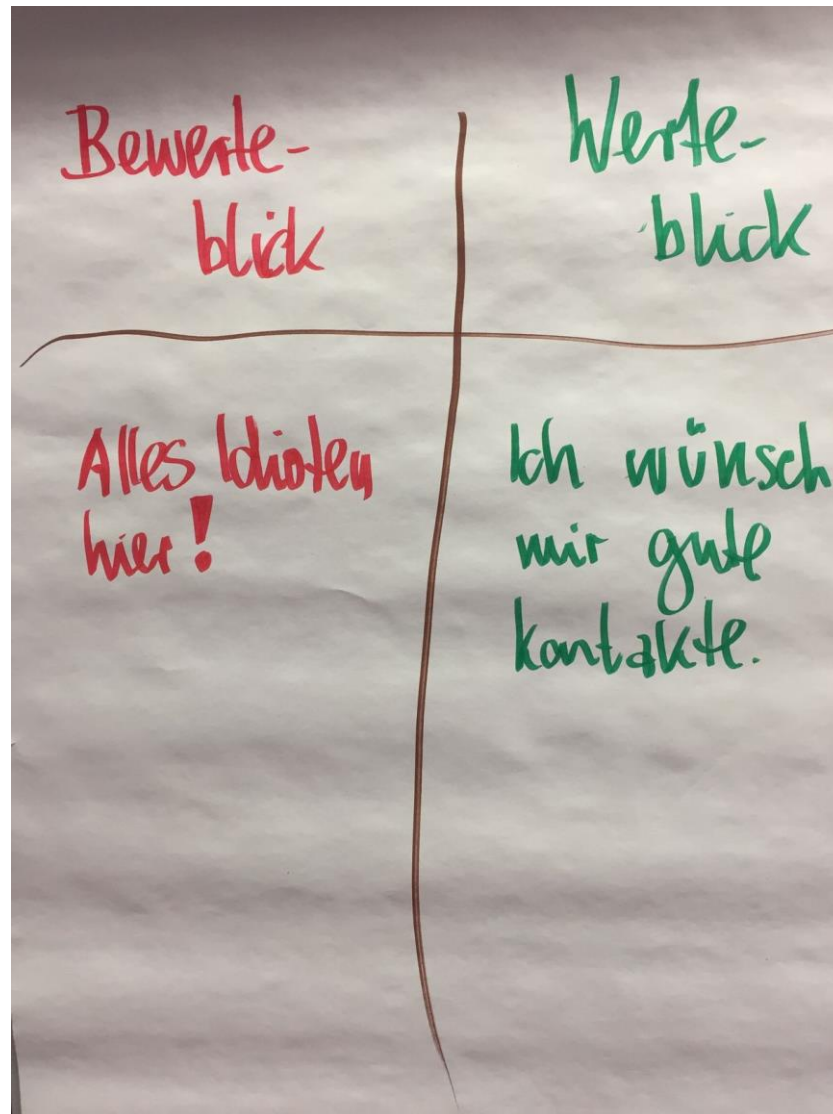 Bewerte-
blick
Werte-
blick
Alles Idioten
hier!
Ich wünsch
mir gute
Kontakte.